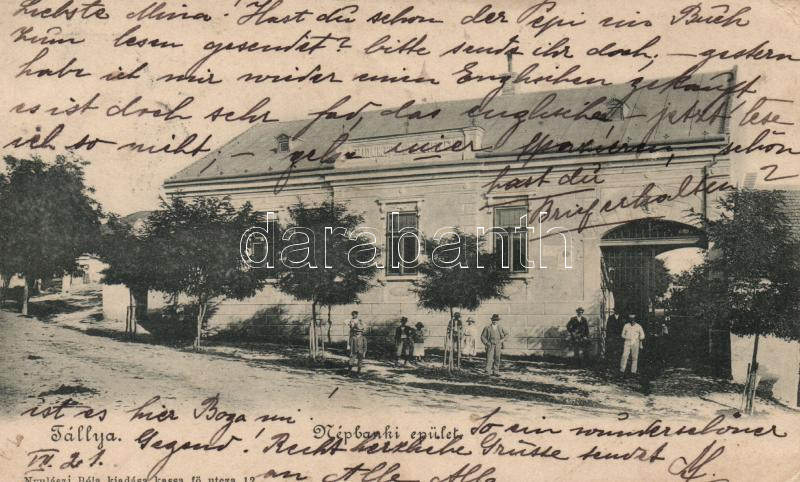 Liebste Mina! Hast du schon der Pepi ein Buch
zum lesen gesendet? bitte sende ihr doch, – gestern
habe ich mir wieder einen Englischen gekauft
es ist doch sehr fad, das englische – jetzt lese
ich so nicht, – gehe immer spazieren, schön
hast du
Brief erhalten?
darabanth
ist es hier
Tállya. Népbanki épület.
So ein wunderschöner
Gegend! Recht herzliche Grüsse sendet M.
an Alle Alle
Nyulászi Béla kiadása kassa fő utcza 12